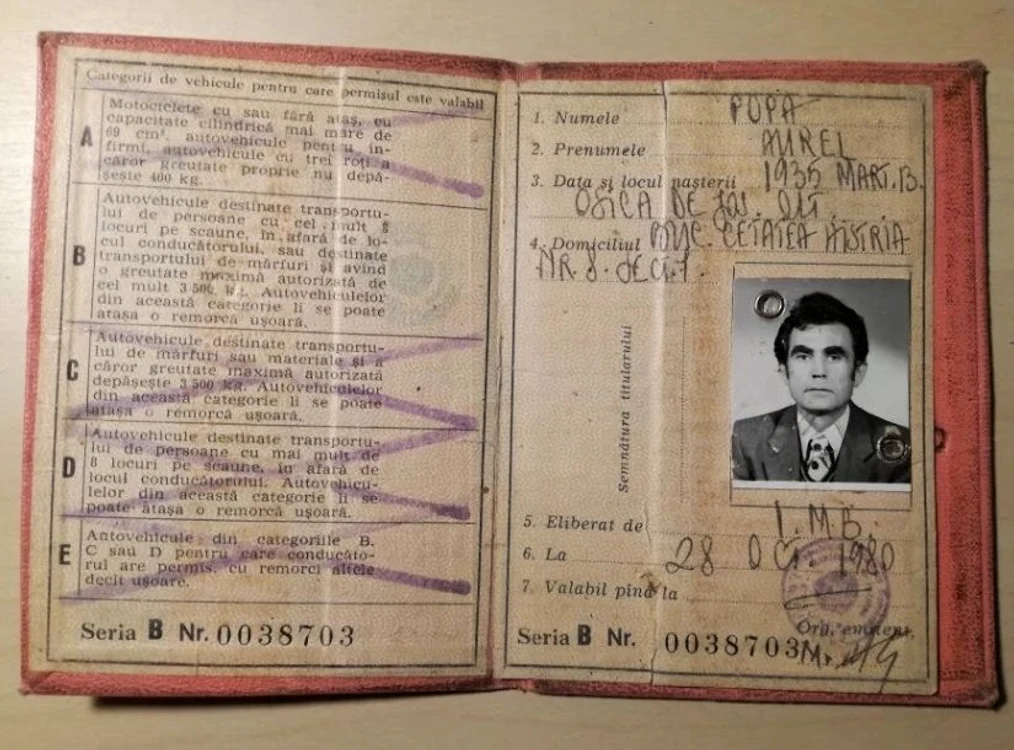 Categorii de vehicule pentru care permisul este valabil
A
Motociclete cu sau fără ataș, cu
capacitate cilindrică mai mare de
69 cm³, autovehicule pentru in-
firmi, autovehicule cu trei roți a
căror greutate proprie nu depă-
șește 400 kg.
B
Autovehicule destinate transportu-
lui de persoane cu cel mult 8
locuri pe scaune, în afară de lo-
cul conducătorului, sau destinate
transportului de mărfuri și avînd
o greutate maximă autorizată de
cel mult 3 500 kg. Autovehiculelor
din această categorie li se poate
atașa o remorcă ușoară.
C
Autovehicule destinate transportu-
lui de mărfuri sau materiale și a
căror greutate maximă autorizată
depășește 3 500 kg. Autovehiculelor
din această categorie li se poate
atașa o remorcă ușoară.
D
Autovehicule destinate transportu-
lui de persoane cu mai mult de
8 locuri pe scaune, în afară de
locul conducătorului. Autovehicu-
lelor din această categorie li se
poate atașa o remorcă ușoară.
E
Autovehicule din categoriile B.
C sau D pentru care conducăto-
rul are permis, cu remorci altele
decît ușoare.
Seria B Nr. 0038703
1. Numele POPA
2. Prenumele AUREL
3. Data și locul nașterii 1935 MART. 13.
OSICA DE JOS. OLT
4. Domiciliul BUC. CETATEA HISTRIA
NR. 8. SECT. 7.
Semnătura titularului
5. Eliberat de I.M.B.
6. La 28 OCT. 1980
7. Valabil pînă la
Org. emitent,
Seria B Nr. 0038703